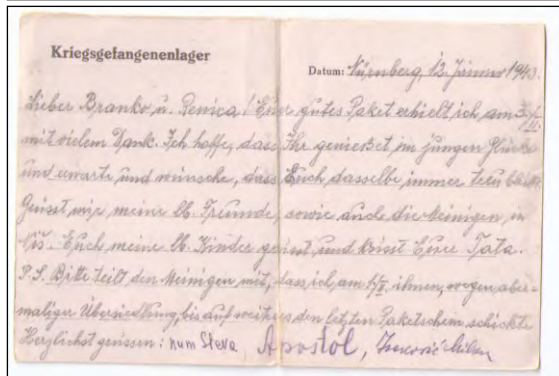 Kriegsgefangenenlager
Datum: Nürnberg, 12. Jänner 1943.
Lieber Branko u. Renica! Euer gutes Paket erhielt ich am
mit vielem Dank. Ich hoffe, dass Ihr genießet im jungen Glücke
und erwarte und wünsche, dass Euch dasselbe immer treu
Grüsst mir meine lb. Freunde, sowie auch die Meinigen, in
Niš. Euch meine lb. Kinder grüsst und küsst Euer Tata.
P.S. Bitte teilt den Meinigen mit, dass ich am ihnen, wegen aber-
maliger Übersiedlung, bis auf weiteres den letzten Paketschein schickte
Herzlichst grüssen: Steva, Apostol,